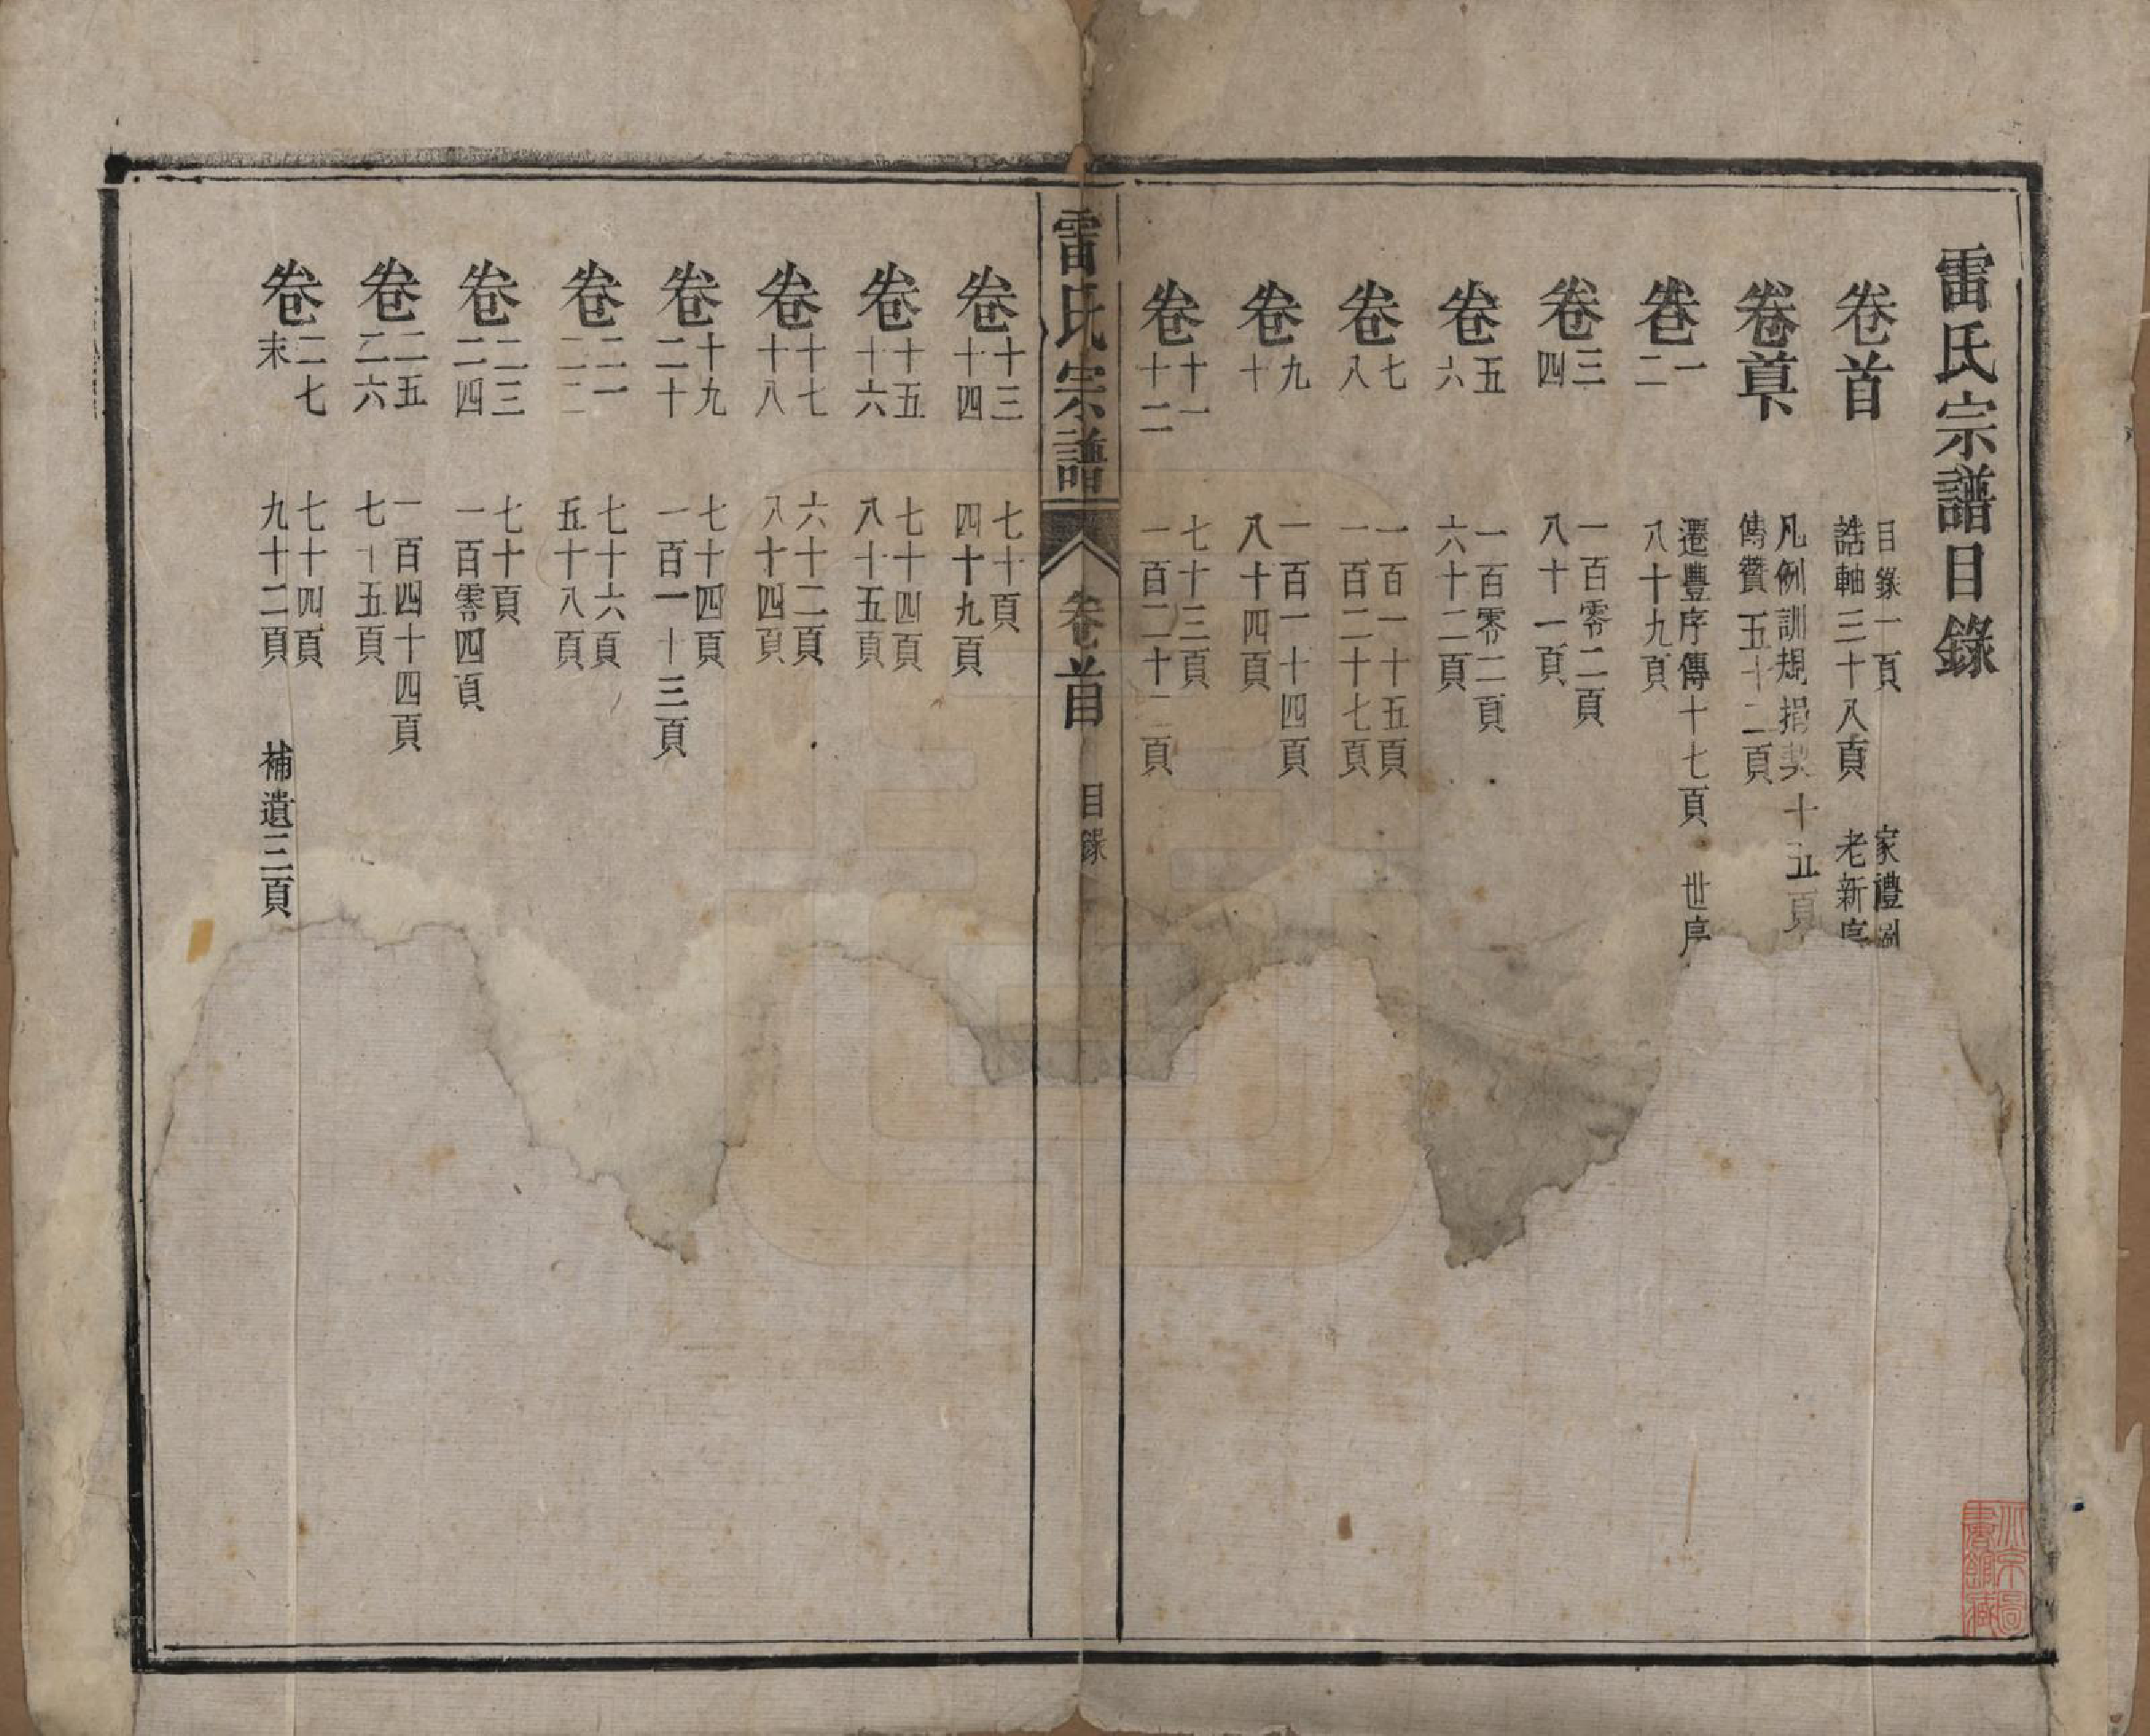 雷氏宗譜目錄
卷首
目錄一頁 家禮
誥軸三十八頁 老新序
卷首下
凡例訓規捐契十五頁
傳贊五十二頁
卷一二
遷豐序傳十七頁 世序
八十九頁
卷三四
一百零二頁
八十一頁
卷五六
一百零二頁
六十二頁
卷七八
一百一十五頁
一百二十七頁
卷九十
一百一十四頁
八十四頁
卷十一十二
七十三頁
一百二十二頁
雷氏宗譜 卷首 目錄
卷十三十四
七十頁
四十九頁
卷十五十六
七十四頁
八十五頁
卷十七十八
六十二頁
八十四頁
卷十九二十
七十四頁
一百一十三頁
卷二一二二
七十六頁
五十八頁
卷二三二四
七十頁
一百零四頁
卷二五二六
一百四十四頁
七十五頁
卷二七末
七十四頁
九十二頁 補遺三頁
北京圖書館藏